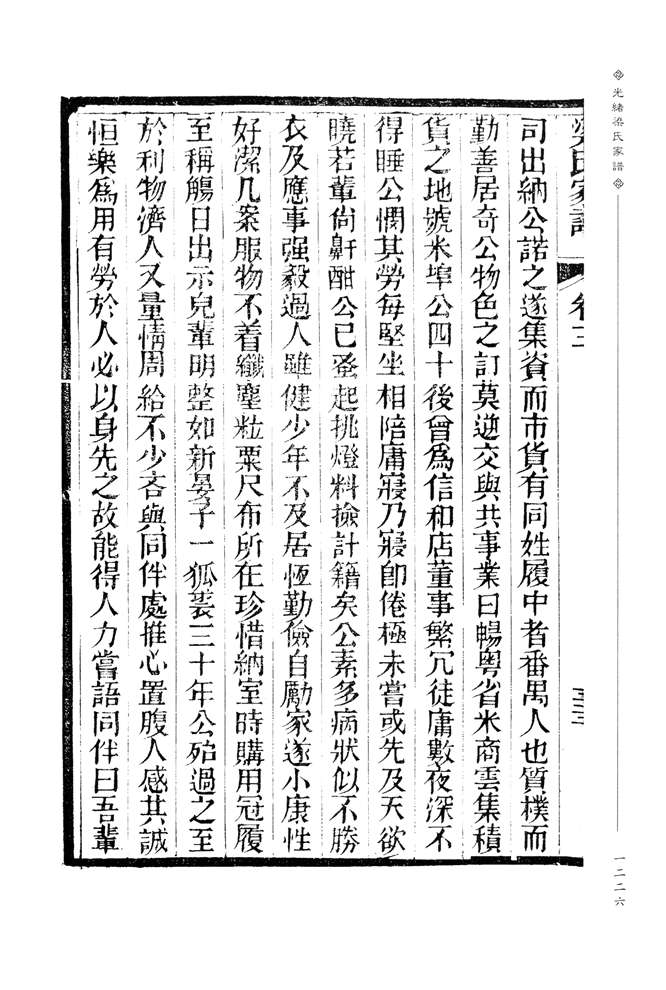 光緒梁氏家譜
一二二六
梁氏家譜 卷三 三三
司出納公諾之遂集資而市貨有同姓履中者番禺人也質樸而
勤善居奇公物色之訂莫逆交與共事業曰暢粵省米商雲集積
貨之地號米埠公四十後曾爲信和店董事繁冗徒庸數夜深不
得睡公憫其勞每堅坐相陪庸寢乃寢卽倦極未嘗或先及天欲
曉若輩尙鼾酣公已蚤起挑燈料撿計籍矣公素多病狀似不勝
衣及應事强毅過人雖健少年不及居恆勤儉自勵家遂小康性
好潔几案服物不着纖塵粒粟尺布所在珍惜納室時購用冠履
至稱觴日出示兒輩明整如新晏子一狐裘三十年公殆過之至
於利物濟人又量情周給不少吝與同伴處推心置腹人感其誠
恒樂爲用有勞於人必以身先之故能得人力嘗語同伴曰吾輩